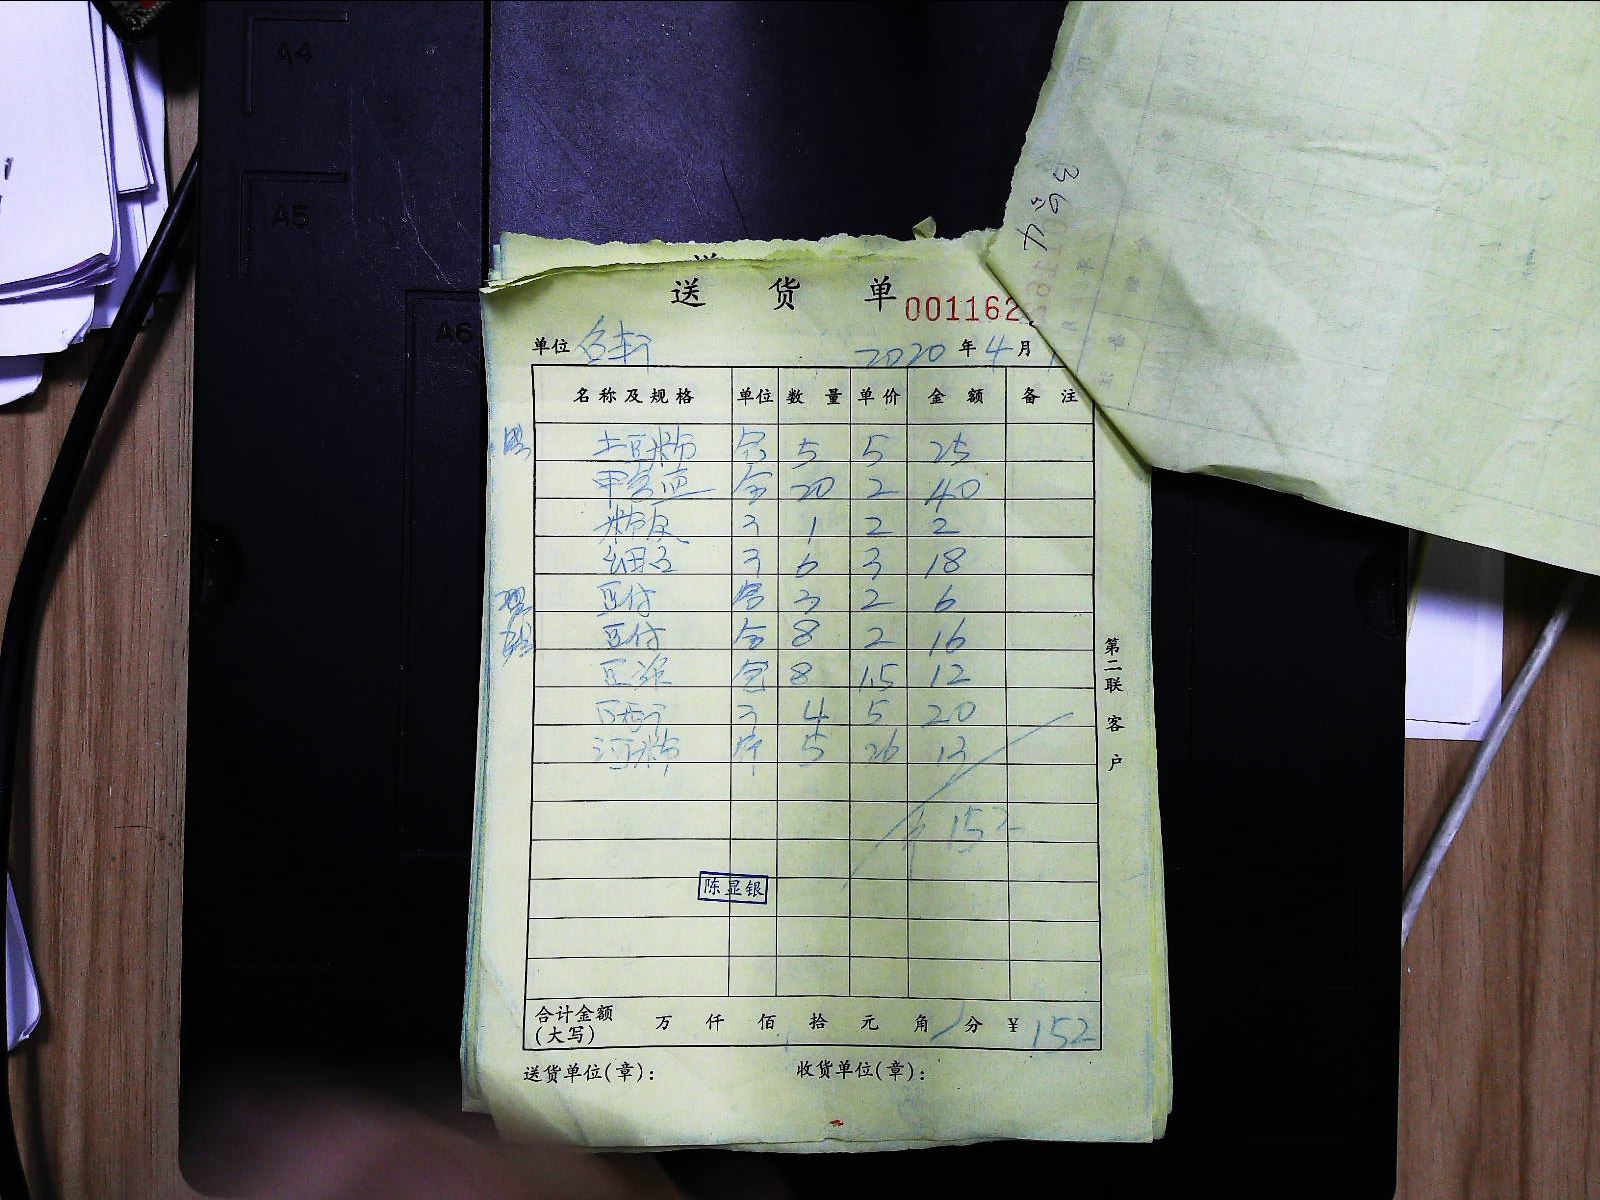 A4
A5
A6
3
送货单 001162
单位 2020年4月
名称及规格 单位 数量 单价 金额 备注
土豆粉 5 5 25
20 2 40
粉皮 个 1 2 2
个 6 3 18
豆付 3 2 6
豆付 8 2 16
豆 8 1.5 12
个 4 5 20
河粉 斤 5 26 13
152
陈显银
合计金额(大写) 万 仟 佰 拾 元 角 分 ¥152
送货单位(章): 收货单位(章):
第二联 客户